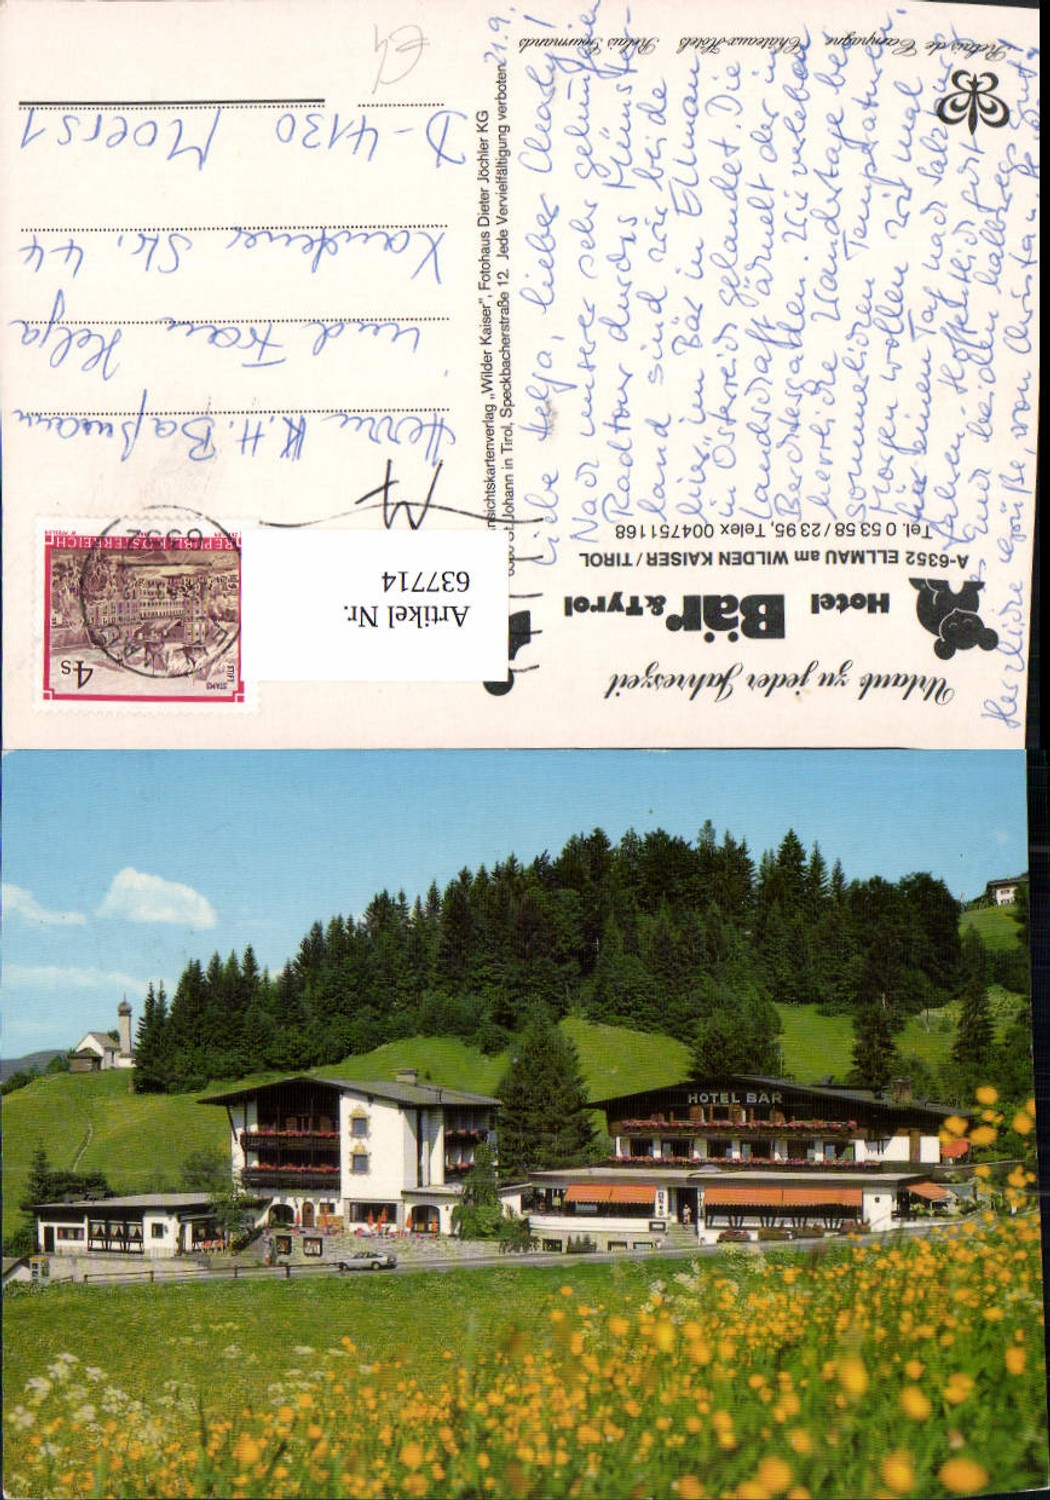 Urlaub zu jeder Jahreszeit
Hotel Bär & Tyrol
A-6352 ELLMAU am WILDEN KAISER / TIROL
Tel. 0 53 58 / 23 95, Telex 004751168
Relais de Campagne Châteaux-Hôtels Relais Gourmands
21.9.
Liebe Helga, lieber Charly!
Nach unserer sehr gelungenen
Radtour durchs Münster-
land sind wir beide
hier im Bär in Ellmau
in Österreich gelandet. Die
Landschaft ähnelt der in
Berchtesgaden. Wir verleben
herrliche Wandertage bei
sommerlichen Temperaturen.
Morgen wollen wir mal
für einen Tag nach Salzburg
fahren. Hoffentlich geht
es Euch beiden halbwegs gut.
Herzliche Grüße, von Christa u.
Ansichtskartenverlag „Wilder Kaiser", Fotohaus Dieter Jöchler KG
St. Johann in Tirol, Speckbacherstraße 12. Jede Vervielfältigung verboten.
Artikel Nr.
637714
REPUBLIK ÖSTERREICH
STIFT
STAMS
4s
Herrn K. H. Baßmann
und Frau Helga
Xantener Str. 44
D-4130 Moers 1
HOTEL BÄR